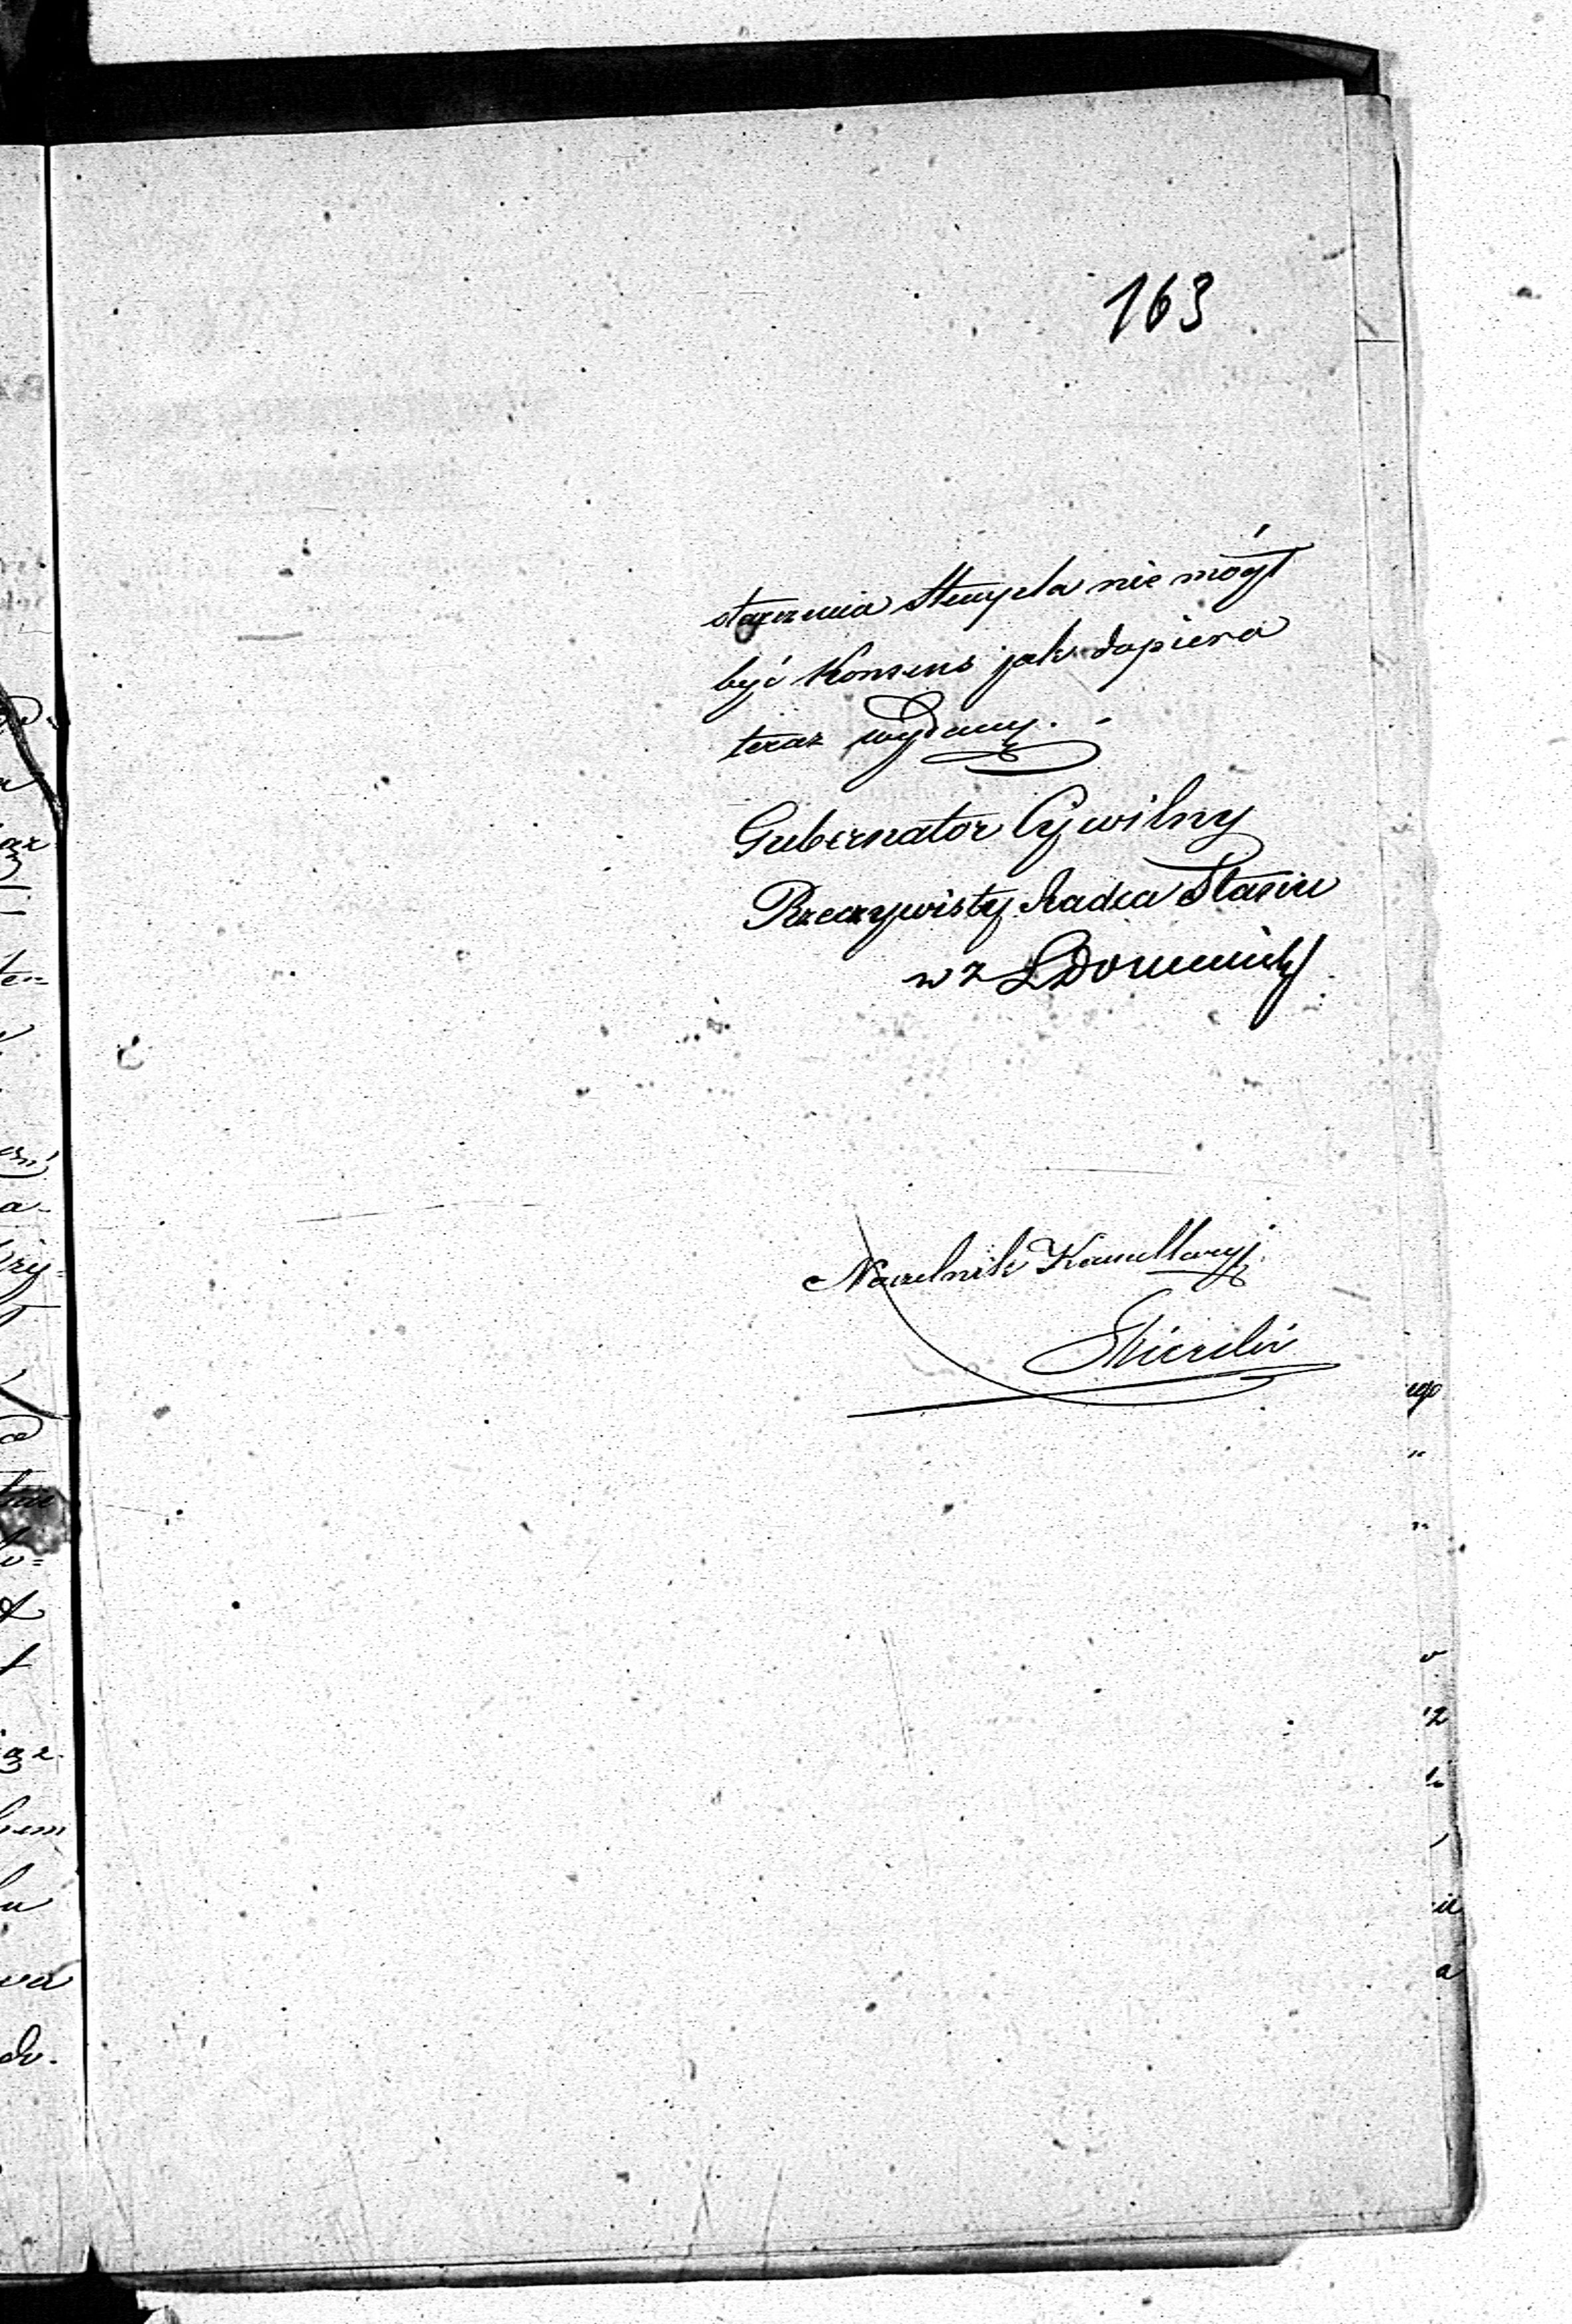 163
starczenia Stempla nie mógł
być Konsens jak dopiero
teraz wydany.
Gubernator Cywilny
Rzeczywisty Radca Stanu
w z
Naczelnik Kancellaryi